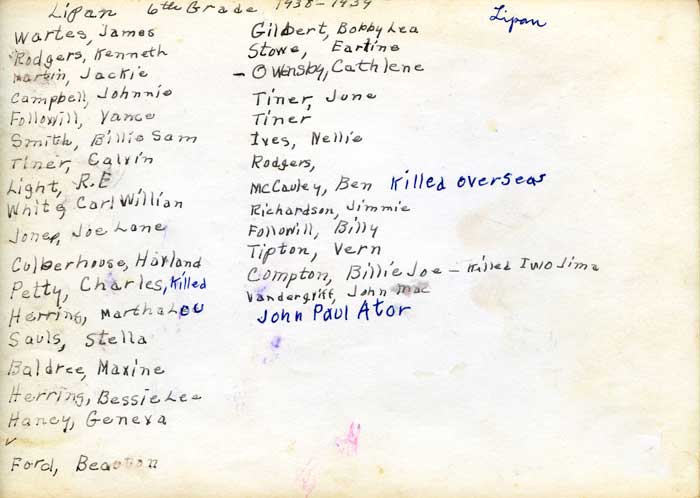 Lipan 6th Grade 1938-1939
Lipan
Wartes, James
Rodgers, Kenneth
Martin, Jackie
Campbell, Johnnie
Followill, Vance
Smith, Billie Sam
Tiner, Calvin
Light, R.E
White, Carl Willian
Jones, Joe Lane
Culberhouse, Harland
Petty, Charles, Killed
Herring, Martha Lou
Sauls, Stella
Baldree, Maxine
Herring, Bessie Lee
Haney, Geneva
Ford,
Gilbert, Bobby Lea
Stowe, Earline
- Owensby, Cathlene
Tiner, June
Tiner
Ives, Nellie
Rodgers,
McCauley, Ben Killed overseas
Richardson, Jimmie
Followill, Billy
Tipton, Vern
Compton, Billie Joe - Killed Iwo Jima
Vandergrift, John Mac
John Paul Ator